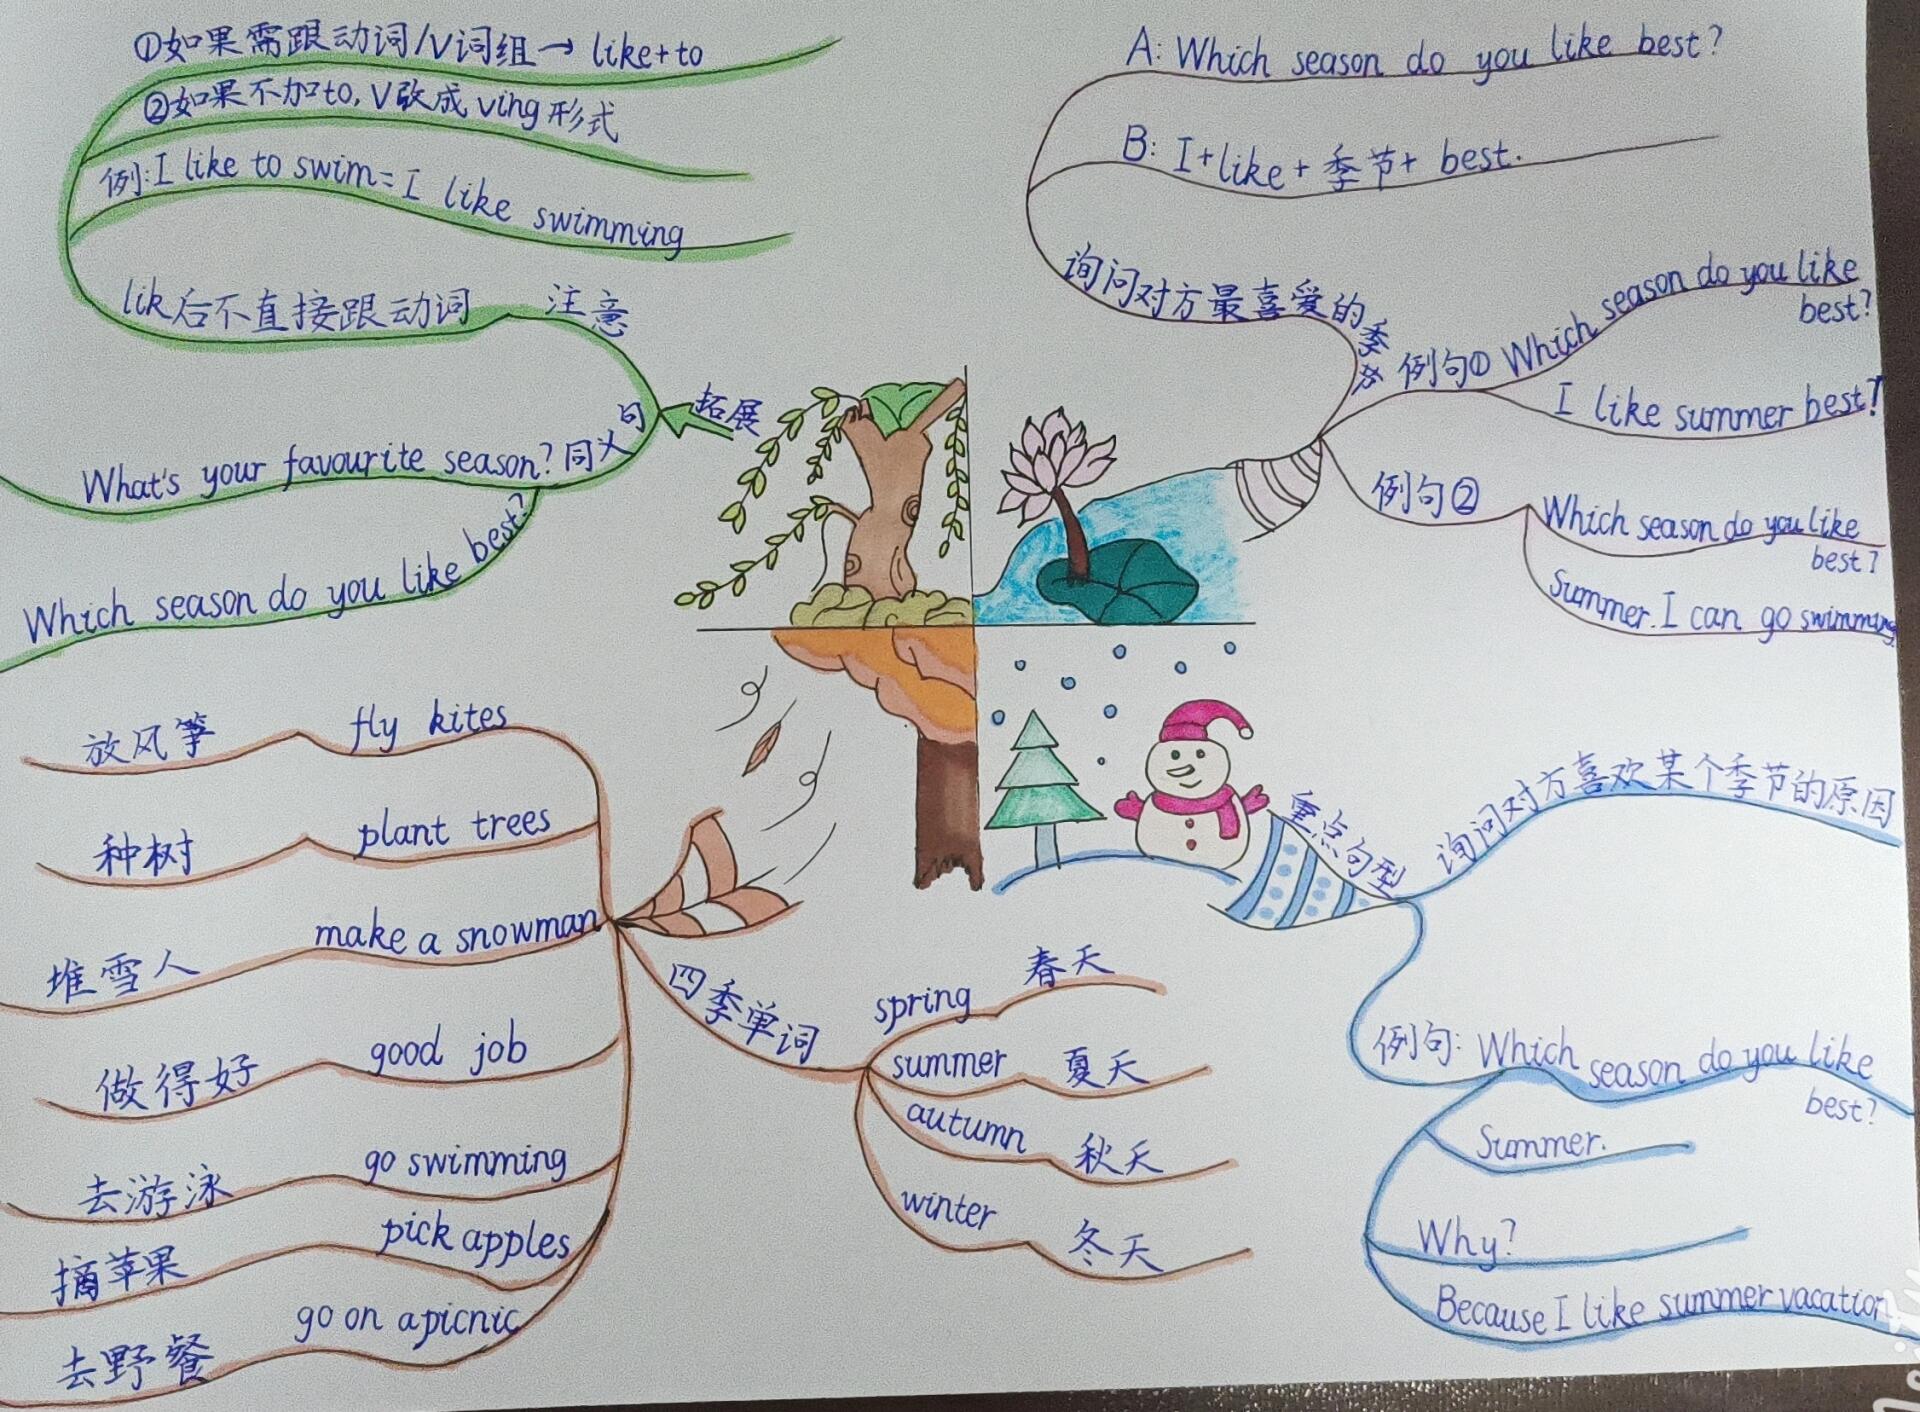 ①如果需跟动词/V词组→ like+to
②如果不加to,V改成ving形式
例:I like to swim=I like swimming
lik后不直接跟动词
注意
拓展
同义句
What's your favourite season?
Which season do you like best?
A: Which season do you like best?
B: I+like+季节+ best.
询问对方最喜爱的季节
例句① Which season do you like
best?
I like summer best!
例句②
Which season do you like
best?
Summer. I can go swimming
fly kites
放风筝
plant trees
种树
make a snowman
堆雪人
good job
做得好
go swimming
去游泳
pick apples
摘苹果
go on a picnic
去野餐
四季单词
spring 春天
summer 夏天
autumn 秋天
winter 冬天
重点句型
询问对方喜欢某个季节的原因
例句: Which season do you like
best?
Summer.
Why?
Because I like summer vacation